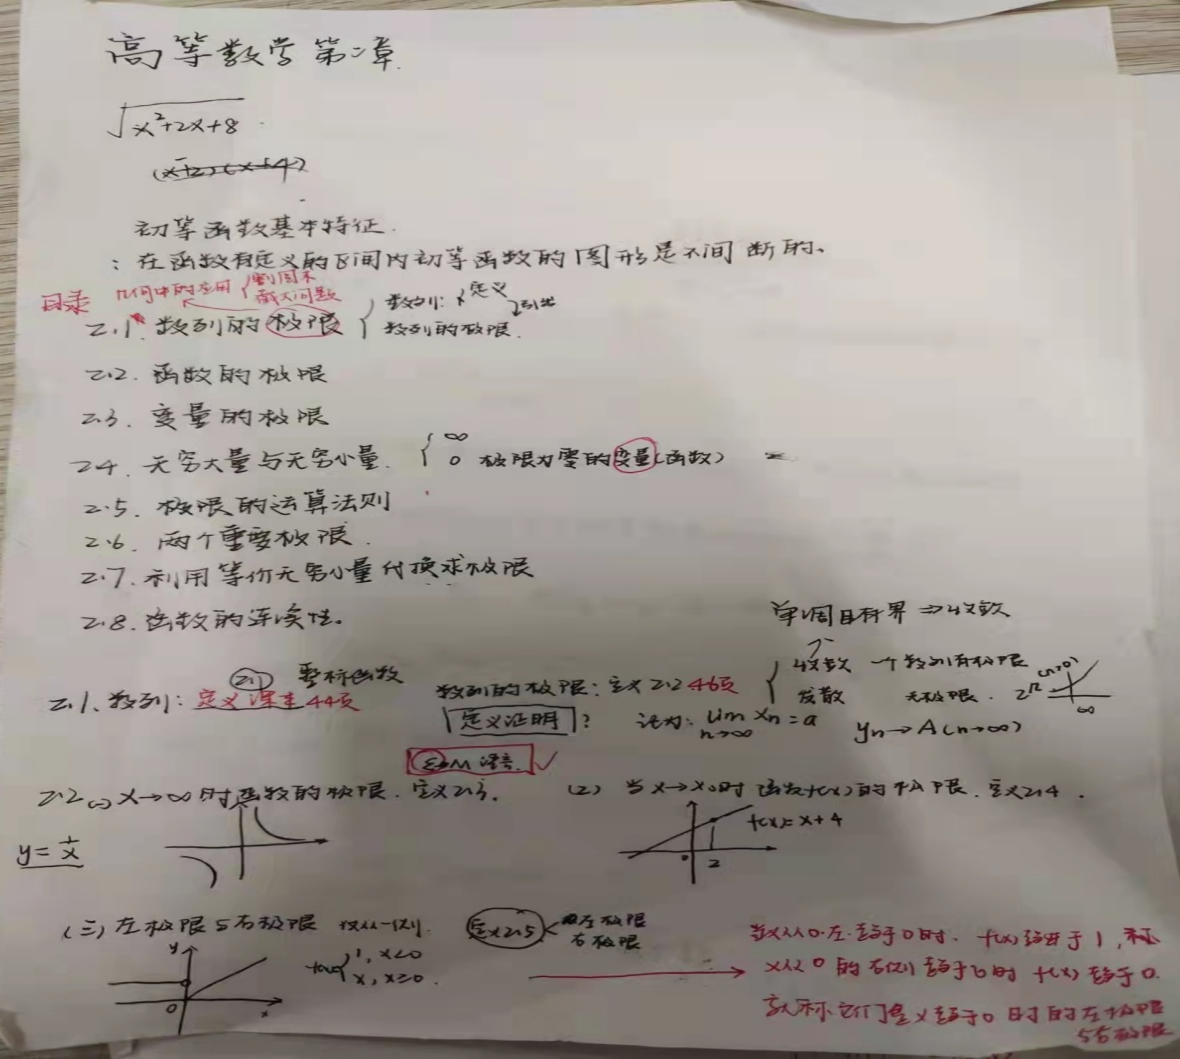 高等数学第二章
√x²+2x+8
(x+2)(x+4)
初等函数基本特征.
：在函数有定义的区间内初等函数的图形是不间断的、
目录 几何中的应用 { 割圆术
截丈问题
2.1 数列的极限 { 数列: 定义
数列的极限.
2.2. 函数的极限
2.3. 变量的极限
2.4. 无穷大量与无穷小量. { ∞
0 极限为零的变量(函数)
2.5. 极限的运算法则
2.6. 两个重要极限.
2.7. 利用等价无穷小量代换求极限
2.8. 函数的连续性。
单调且有界 => 收敛
2.1 整标函数
2.1、数列: 定义课本44页
数列的极限: 定义2.2 46页 { 收敛 一个数列有极限
发散 无极限.
∞
定义证明 ? 记为: lim xn = a
n→∞
yn→A(n→∞)
语言. ✓
2.2 (1) x→∞时函数的极限. 定义2.3.
(2) 当x→x0时函数f(x)的极限. 定义2.4.
y=1/x
f(x)=x+4
0 2
(三) 左极限与右极限
定义2.5 < 左极限
右极限
y
f(x){ 1, x<0
x, x≥0.
0 x
当x从0左趋于0时. f(x)趋于1, 称
x从0的右侧趋于0时 f(x)趋于0.
就称它们是x趋于0时的左极限
与右极限